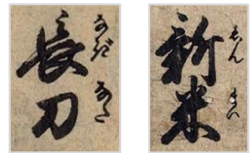 長刀
なぎなた
新米
しんまい